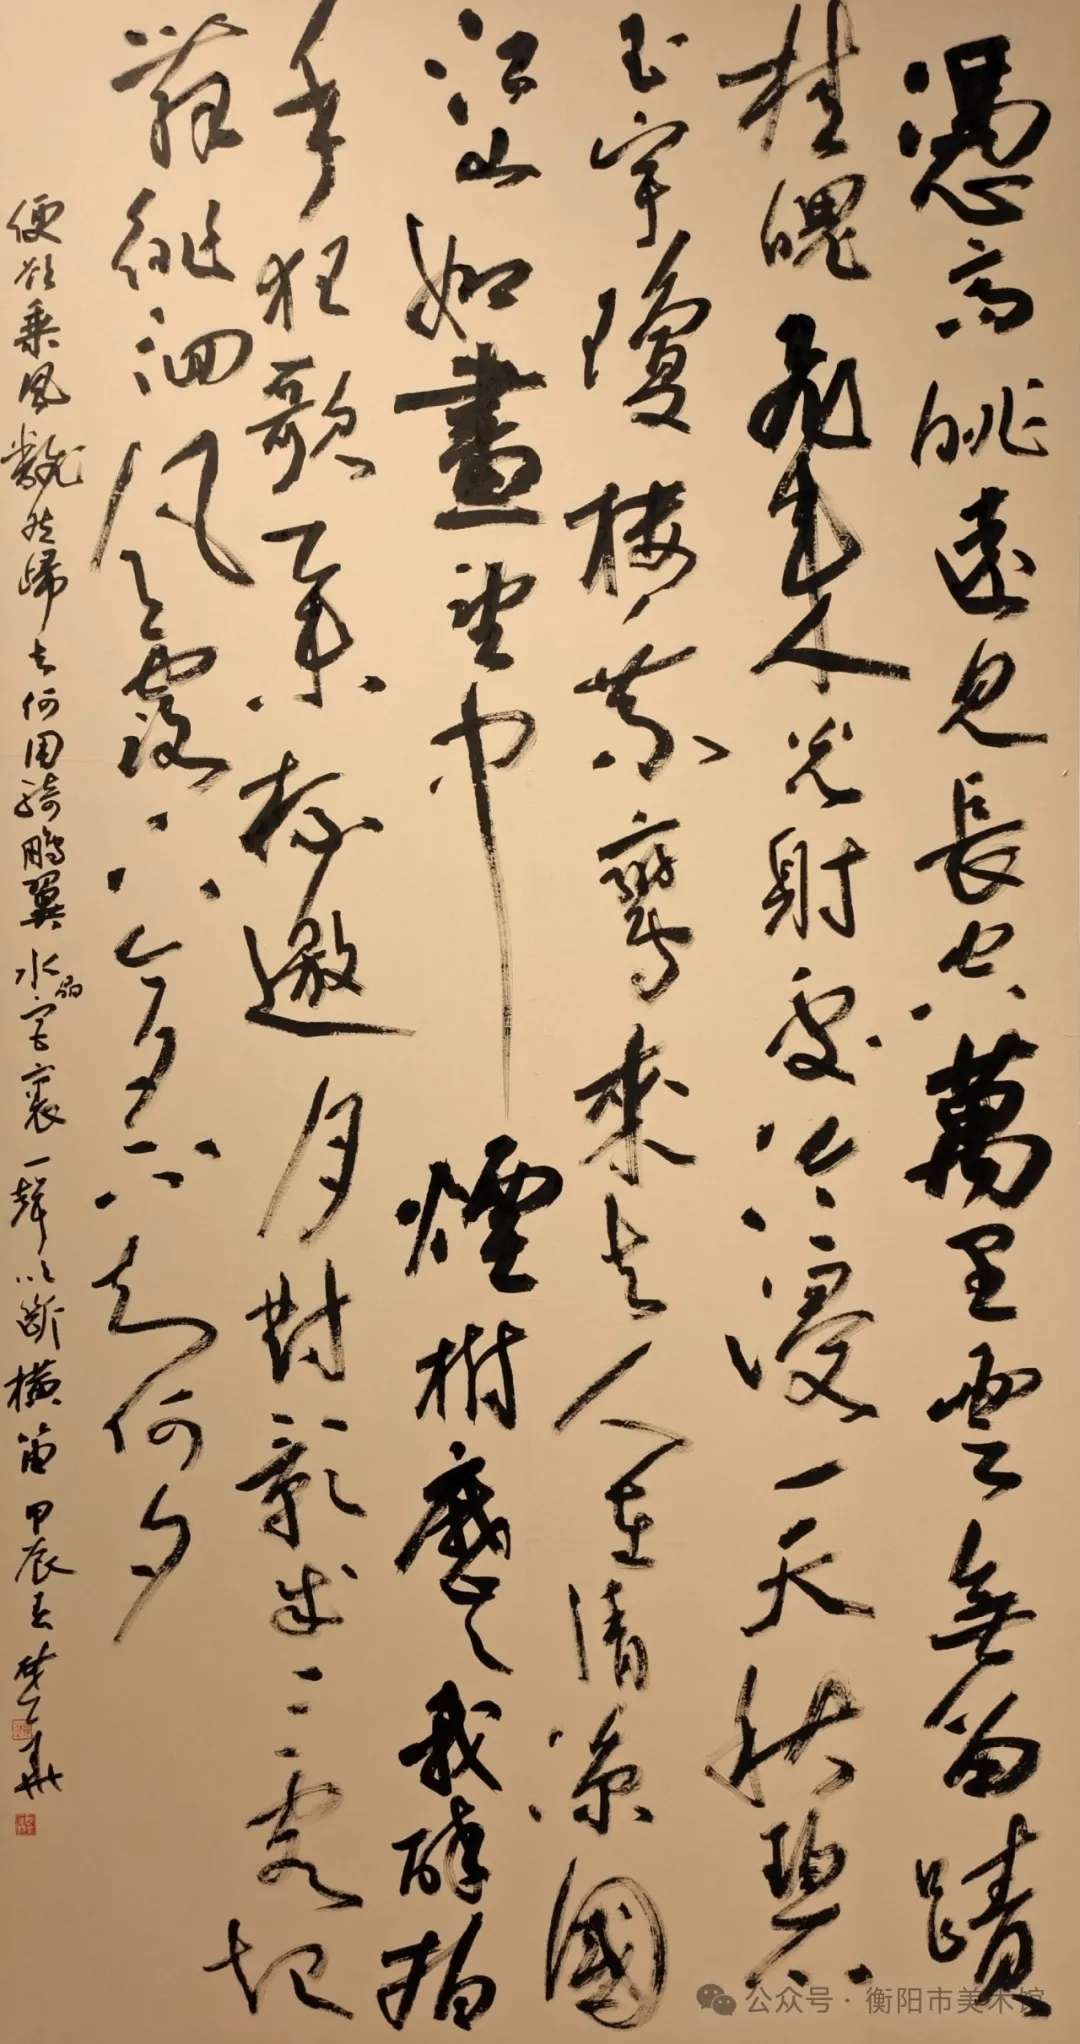 憑高眺遠見長空萬里雲無留蹟
桂魄飛來光射處冷浸一天秋碧
玉宇瓊樓乘鸞來去人在清涼國
江山如畫望中煙樹歷歷我醉拍
手狂歌舉杯邀月對影成三客起
舞徘徊風露下今夕不知何夕
便欲乘風翻然歸去何用騎鵬翼水晶宮裏一聲吹斷橫笛 甲辰春
公众号·衡阳市美术馆